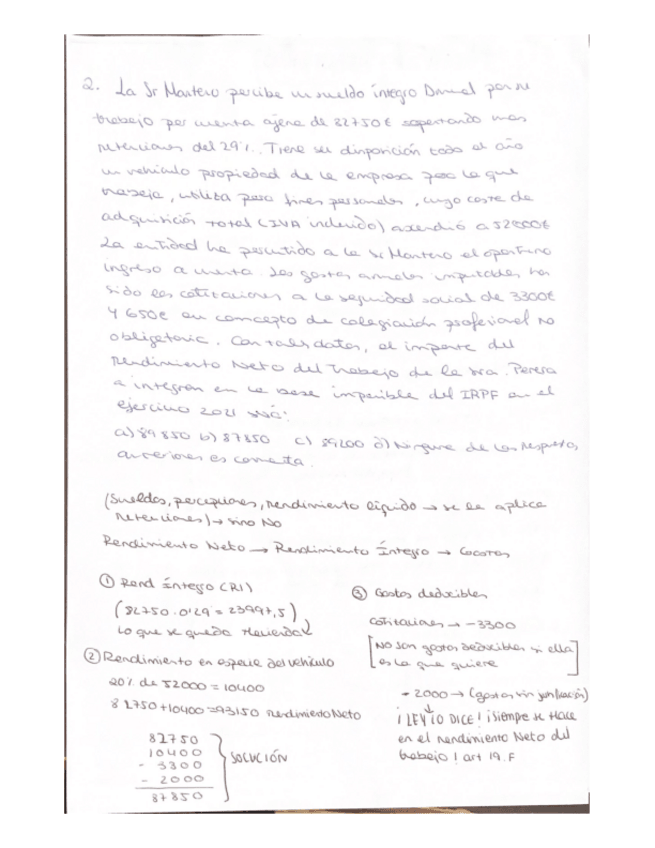 2. La Sr Montero percibe un sueldo íntegro Dnual por su
trabajo por cuenta ajena de 82750€ soportando unas
retenciones del 29%. Tiene su disposición todo el año
un vehículo propiedad de la empresa para la que
trabaja, utiliza para fines personales, cuyo coste de
adquisición total (IVA incluido) ascendió a 52000€
La entidad ha repercutido a la Sr Montero el oportuno
ingreso a cuenta. Los gastos anuales imputables han
sido las cotizaciones a la seguridad social de 3300€
y 650€ en concepto de colegiación profesional no
obligatoria. Con tales datos, el importe del
Rendimiento Neto del Trabajo de la Sra. Perera
a integrar en la base imponible del IRPF en el
ejercicio 2021
a) 89850 b) 87850 c) 89200 d) Ninguna de las respuestas
anteriores es correcta.
(Sueldos, percepciones, rendimiento líquido → se le aplica
retenciones) → sino No
Rendimiento Neto → Rendimiento Íntegro → Gastos
① Rend íntegro (RI)
(82750 . 0'29 = 23997,5)
Lo que se queda Hacienda
② Rendimiento en especie del vehículo
20% de 52000 = 10400
82750 + 10400 = 93150 rendimiento Neto
82750
10400
- 3300
- 2000
87850
SOLUCIÓN
③ Gastos deducibles
cotizaciones → -3300
[No son gastos deducibles si ella
es la que quiere]
- 2000 → (gastos sin justificación)
¡LEY lO DICE! ¡Siempre se Hace
en el rendimiento Neto del
trabajo! art 19.F